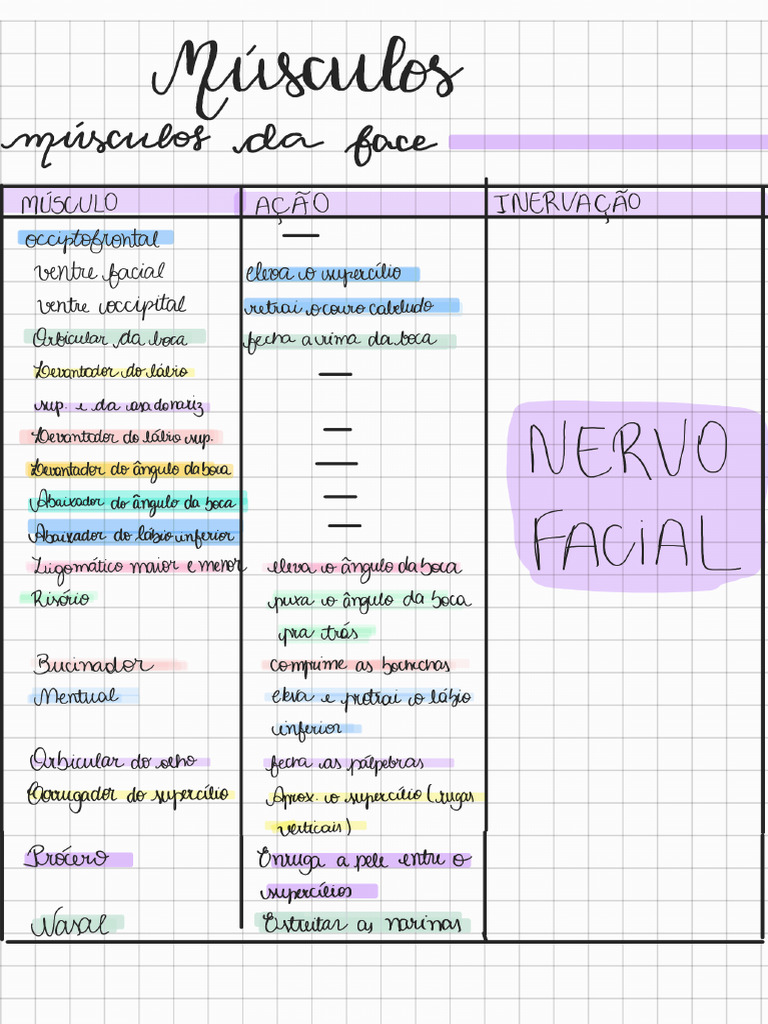 Músculos
músculos da face
MÚSCULO AÇÃO INERVAÇÃO
occiptofrontal —
ventre facial eleva o supercílio
ventre occipital retrai o couro cabeludo
Orbicular da boca fecha a rima da boca
Levantador do lábio —
sup. e da asa do nariz
Levantador do lábio sup. —
Levantador do ângulo da boca —
Abaixador do ângulo da boca —
Abaixador do lábio inferior —
NERVO
FACIAL
Zigomático maior e menor eleva o ângulo da boca
Risório puxa o ângulo da boca
pra trás
Bucinador comprime as bochichas
Mentual eleva e protrai o lábio
inferior
Orbicular do olho fecha as pálpebras
Corrugador do supercílio Aprox. o supercílio (rugas
verticais)
Prócero Enruga a pele entre o
supercílios
Nasal Estreitar as narinas